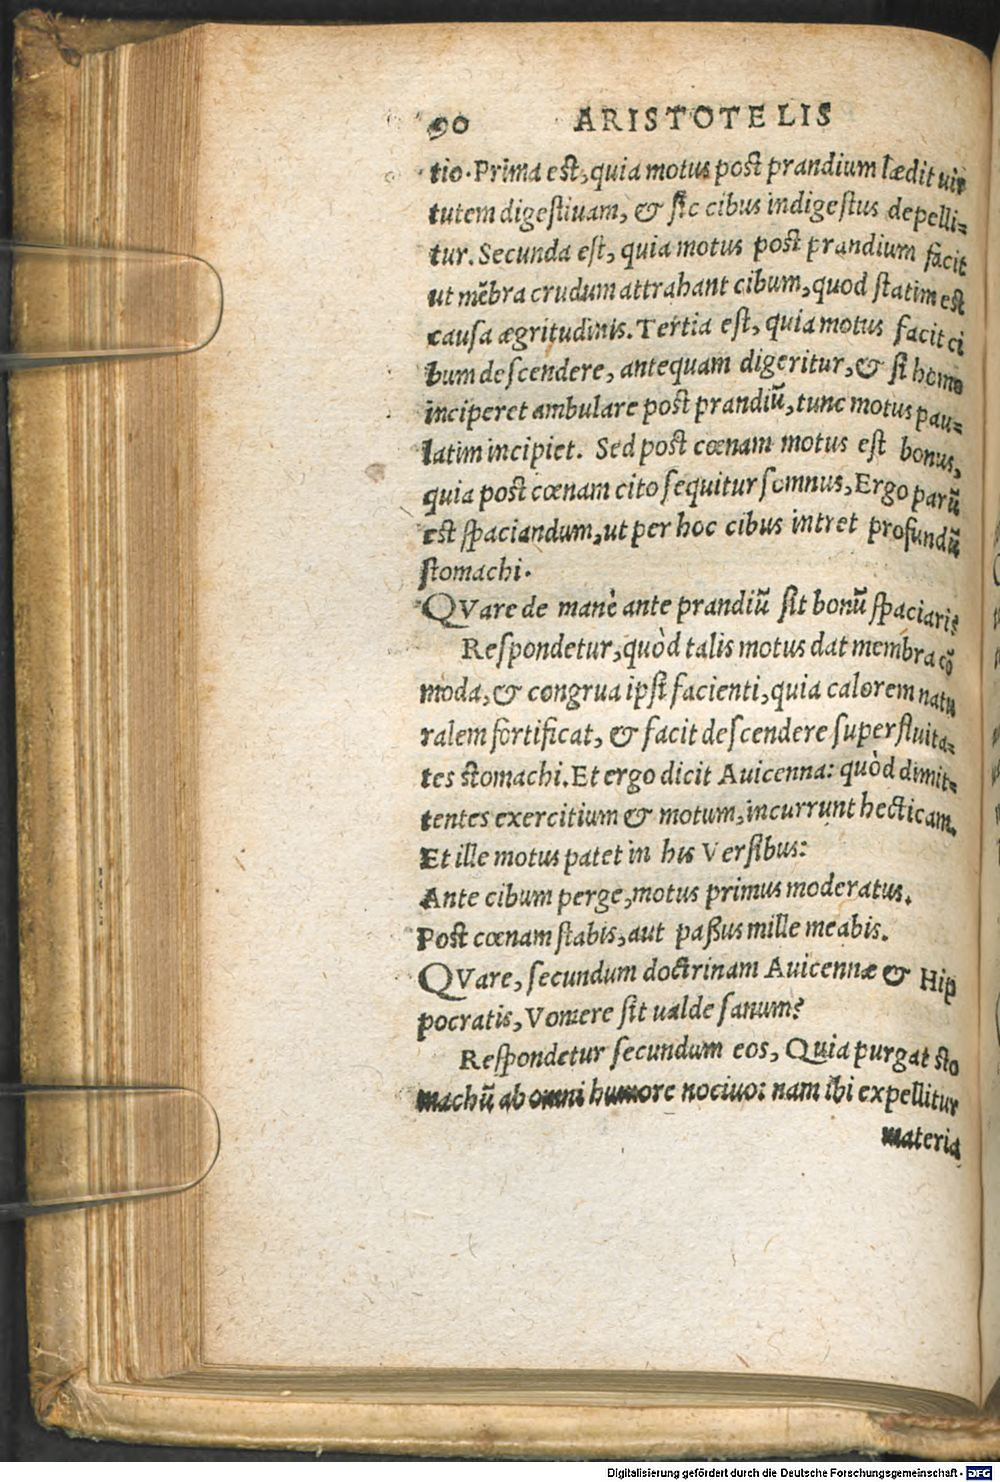 90 ARISTOTELIS
tio. Prima est, quia motus post prandium lædit uir
tutem digestiuam, & sic cibus indigestus depelli=
tur. Secunda est, quia motus post prandium facit
ut mẽbra crudum attrahant cibum, quod statim est
causa ægritudinis. Tertia est, quia motus facit ci
bum descendere, antequam digeritur, & si homo
inciperet ambulare post prandiũ, tunc motus pau=
latim incipiet. Sed post cœnam motus est bonus,
quia post cœnam cito sequitur somnus, Ergo parũ
est spaciandum, ut per hoc cibus intret profundũ
stomachi.
QVare de manè ante prandiũ sit bonũ spaciaris
Respondetur, quòd talis motus dat membra cõ
moda, & congrua ipsi facienti, quia calorem natu
ralem fortificat, & facit descendere superfluita=
tes stomachi. Et ergo dicit Auicenna: quòd dimit=
tentes exercitium & motum, incurrunt hecticam.
Et ille motus patet in his Versibus:
Ante cibum perge, motus primus moderatus.
Post cœnam stabis, aut paßus mille meabis.
QVare, secundum doctrinam Auicennæ & Hip
pocratis, Vomere sit ualde sanum?
Respondetur secundum eos, Quia purgat sto
machũ ab omni humore nociuo: nam ibi expellitur
materia
Digitalisierung gefördert durch die Deutsche Forschungsgemeinschaft - DFG